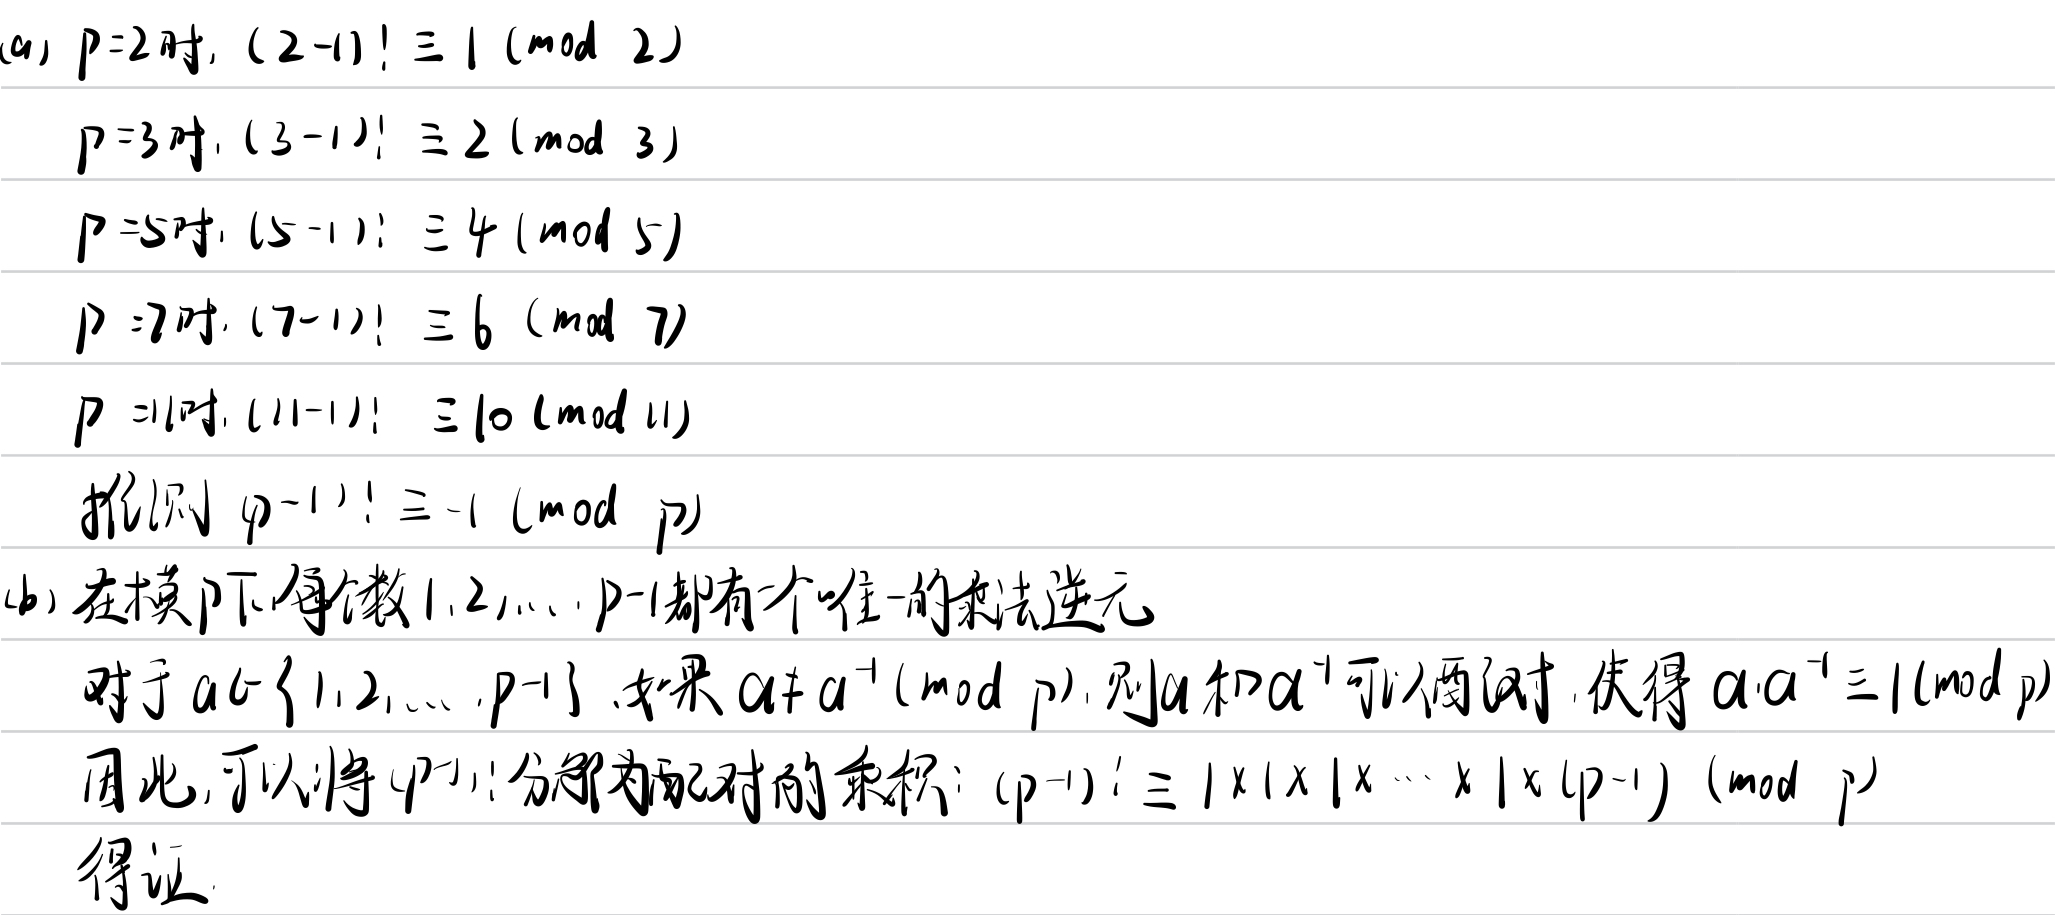 (a) p=2时, (2-1)! ≡ 1 (mod 2)
p=3时, (3-1)! ≡ 2 (mod 3)
p=5时, (5-1)! ≡ 4 (mod 5)
p=7时, (7-1)! ≡ 6 (mod 7)
p=11时, (11-1)! ≡ 10 (mod 11)
推测 (p-1)! ≡ -1 (mod p)
(b) 在模p下,每个数1,2,...,p-1都有一个唯一的乘法逆元
对于a∈{1,2,...,p-1},如果a≠a⁻¹(mod p),则a和a⁻¹可以配对,使得 a·a⁻¹≡1(mod p)
因此,可以将(p-1)!分解为配对的乘积: (p-1)! ≡ 1×1×1×...×1×(p-1) (mod p)
得证.